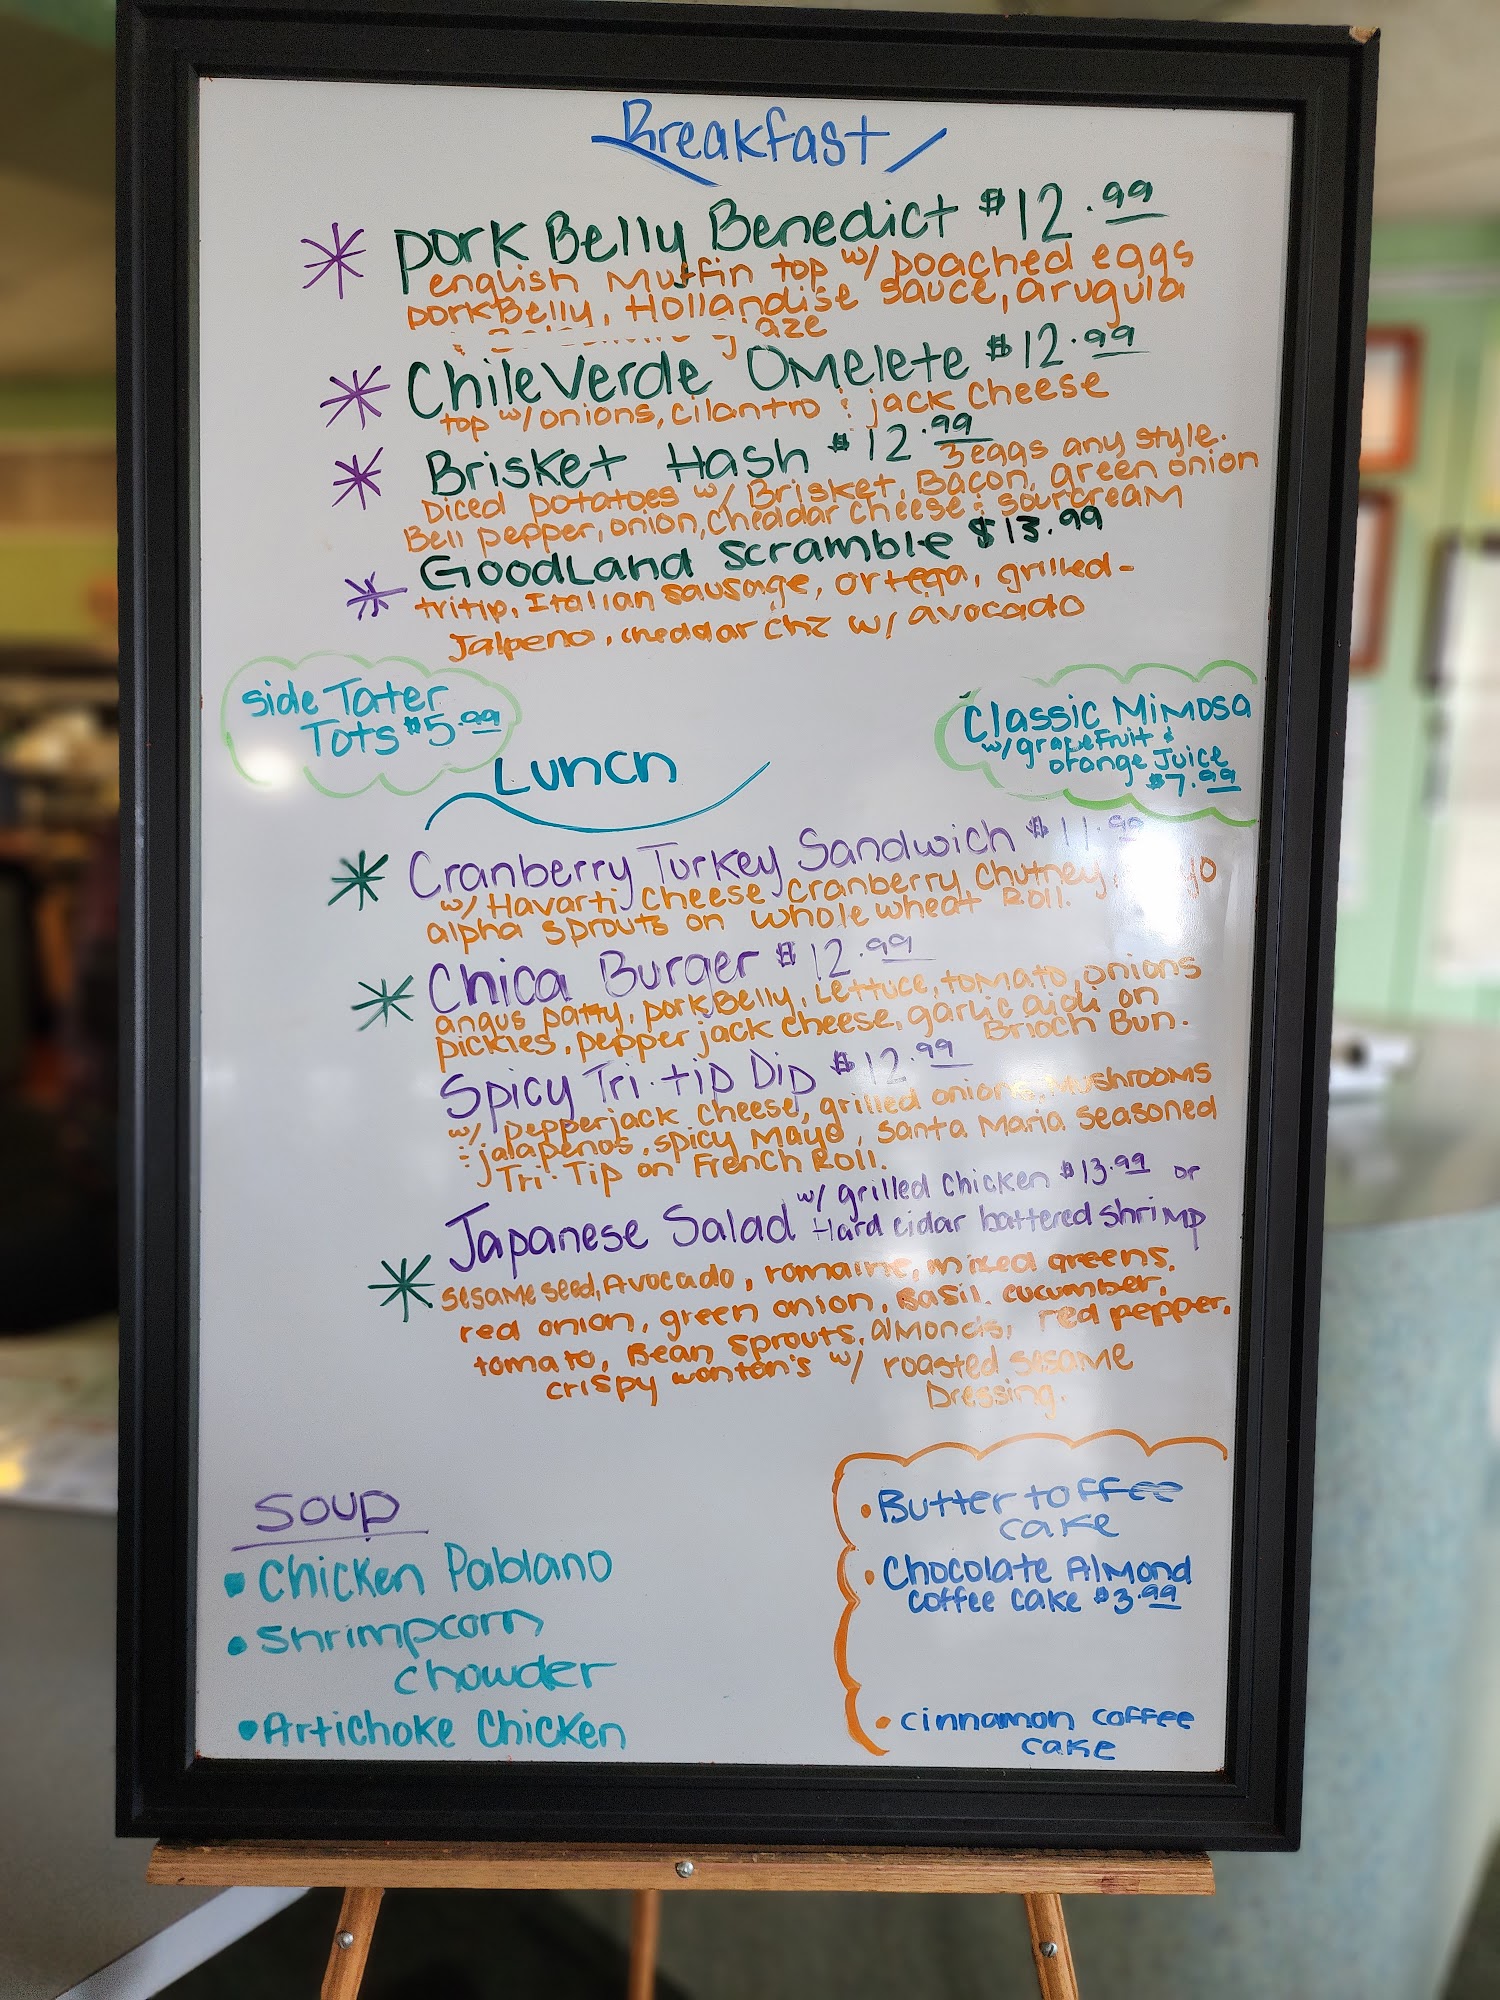 Breakfast
Pork Belly Benedict $12.99
english Muffin top w/ poached eggs
pork Belly, Hollandise sauce, arugula
Chile Verde Omelete $12.99
top w/ onions, cilantro & jack cheese
Brisket Hash $12.99
3 eggs any style.
Diced potatoes w/ Brisket, Bacon, green onion
Bell pepper, onion, cheddar cheese & sourcream
GoodLand scramble $13.99
tritip, Italian sausage, ortega, grilled-
Jalpeno, cheddar chz w/ avocado
side Tater
Tots $5.99
Classic Mimosa
w/ grapefruit &
orange Juice
$7.99
Lunch
Cranberry Turkey Sandwich $11.99
w/ Havarti cheese, cranberry chutney,
alpha sprouts on whole wheat Roll.
Chica Burger $12.99
angus patty, pork Belly, Lettuce, tomato, onions
pickles, pepper jack cheese, garlic aioli on
Brioch Bun.
Spicy Tri-tip Dip $12.99
w/ pepperjack cheese, grilled onions, mushrooms
& jalapenos, spicy mayo, santa Maria seasoned
Tri-Tip on French Roll.
Japanese Salad w/ grilled chicken $13.99 or
Hard cidar battered shrimp
sesame seed, Avocado, romaine, mixed greens,
red onion, green onion, Basil, cucumber,
tomato, Bean sprouts, almonds, red pepper,
crispy wonton's w/ roasted sesame
Dressing.
Soup
• Chicken Pablano
• Shrimp corn
chowder
• Artichoke Chicken
• Butter toffee
cake
• Chocolate Almond
coffee cake $3.99
• cinnamon coffee
cake